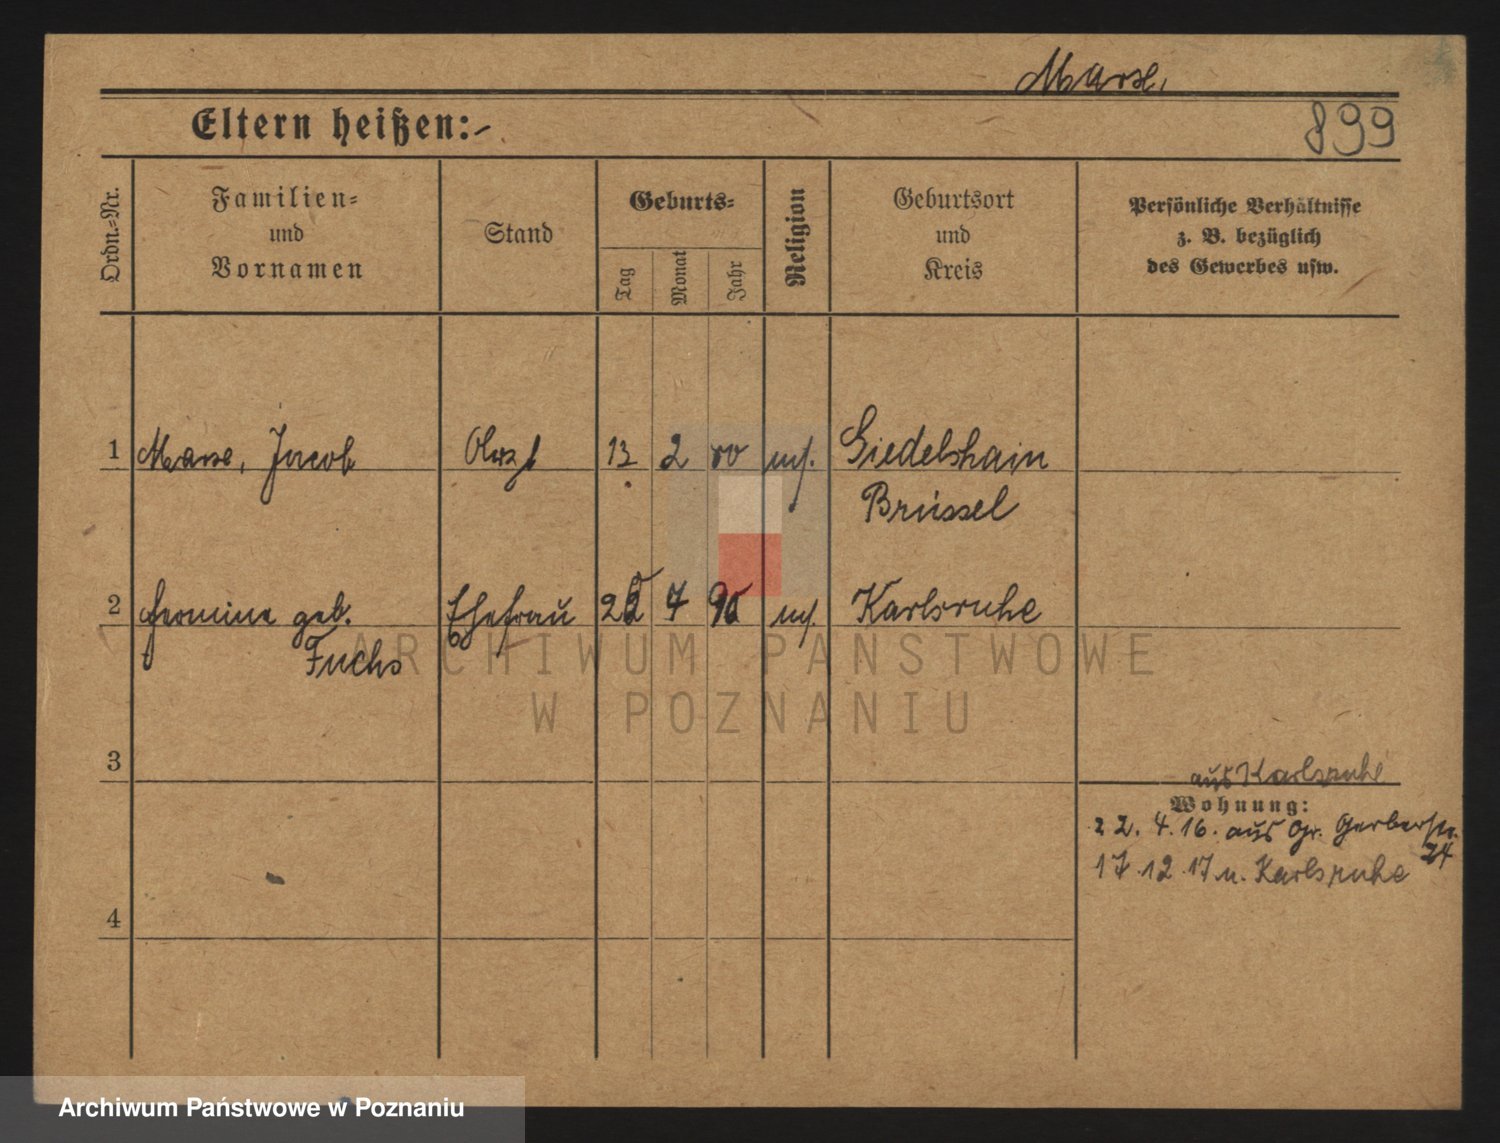 Marx.
Eltern heißen:
899
Ordn.-Nr.
Familien-
und
Vornamen
Stand
Geburts-
Tag
Monat
Jahr
Religion
Geburtsort
und
Kreis
Persönliche Verhältnisse
z. B. bezüglich
des Gewerbes usw.
1 Marx, Jacob 13 2 Giedelshain
Brüssel
2 Hermine geb. Ehefrau 25 7 Karlsruhe
Fuchs
ARCHIWUM PAŃSTWOWE
W POZNANIU
3
aus Karlsruhe
Wohnung:
22. 4. 16. aus Gr. Gerberstr.
24
17.12.17 n. Karlsruhe
4
Archiwum Państwowe w Poznaniu